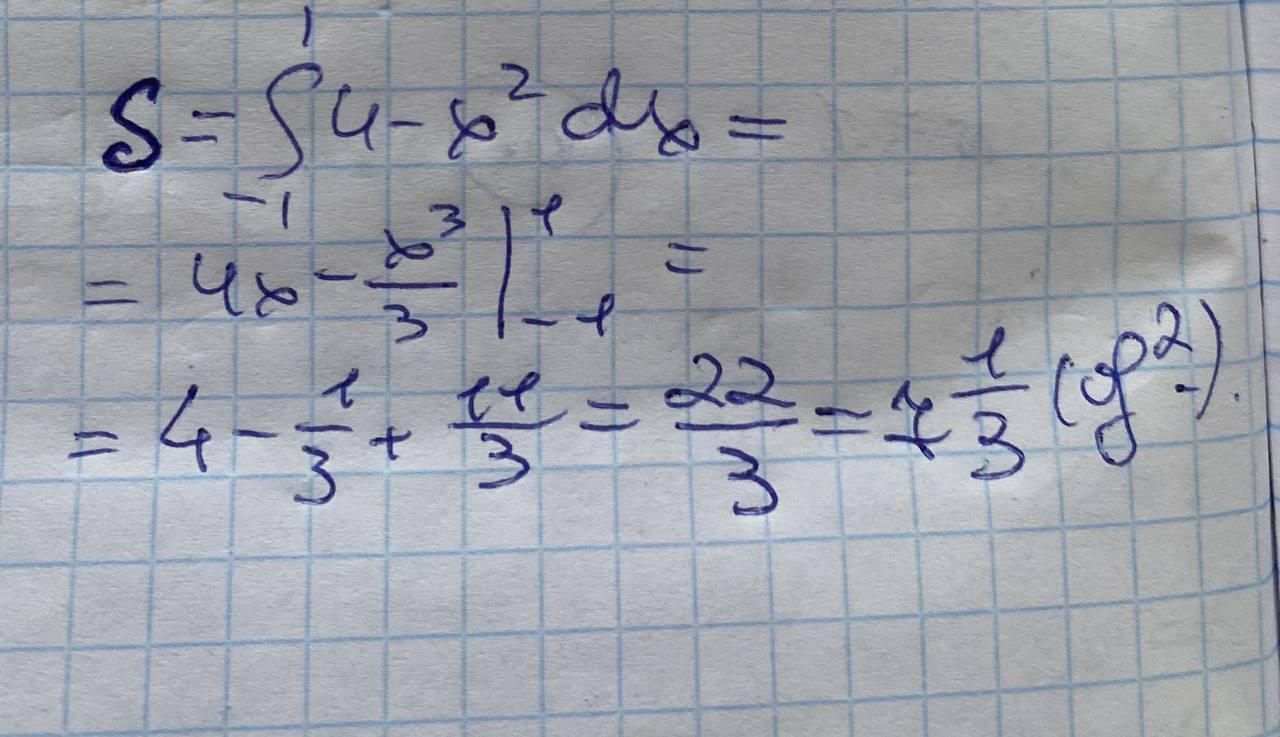 S = ∫₋₁¹ 4 - x² dx =
= 4x - x³/3 |₋₁¹ =
= 4 - 1/3 + 11/3 = 22/3 = 7 1/3